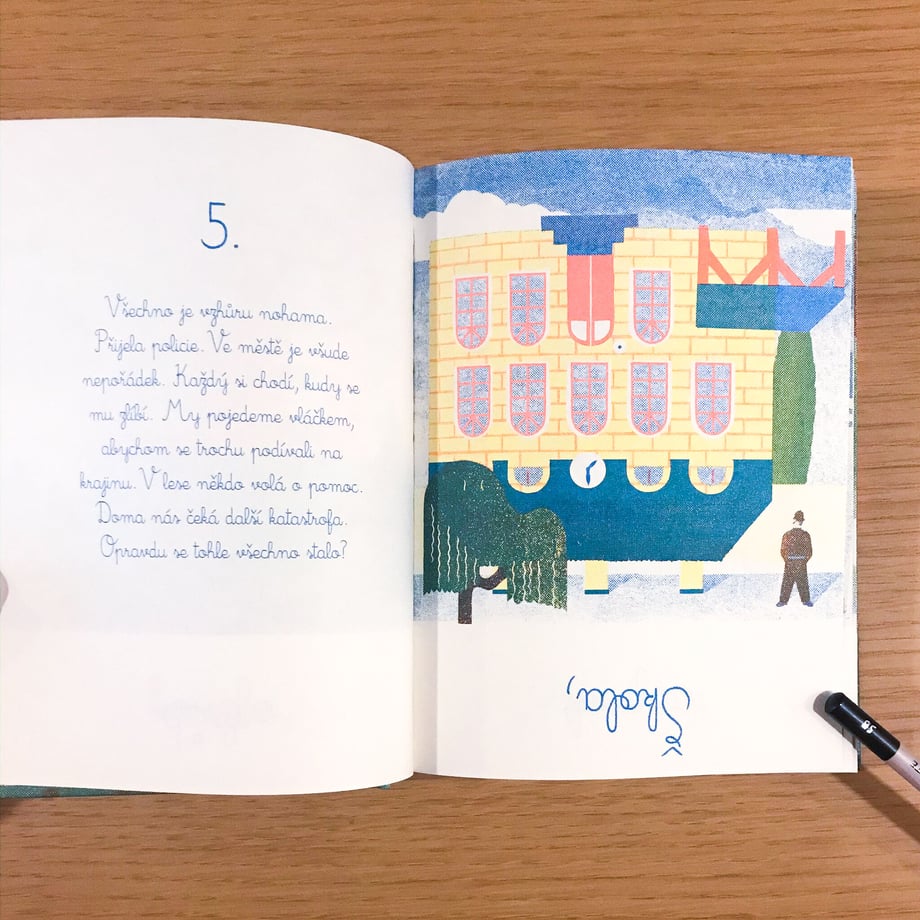 5.
Všechno je vzhůru nohama.
Přijela policie. Ve městě je všude
nepořádek. Každý si chodí, kudy se
mu zlíbí. My pojedeme vláčkem,
abychom se trochu podívali na
krajinu. V lese někdo volá o pomoc.
Doma nás čeká další katastrofa.
Opravdu se tohle všechno stalo?
Škola,